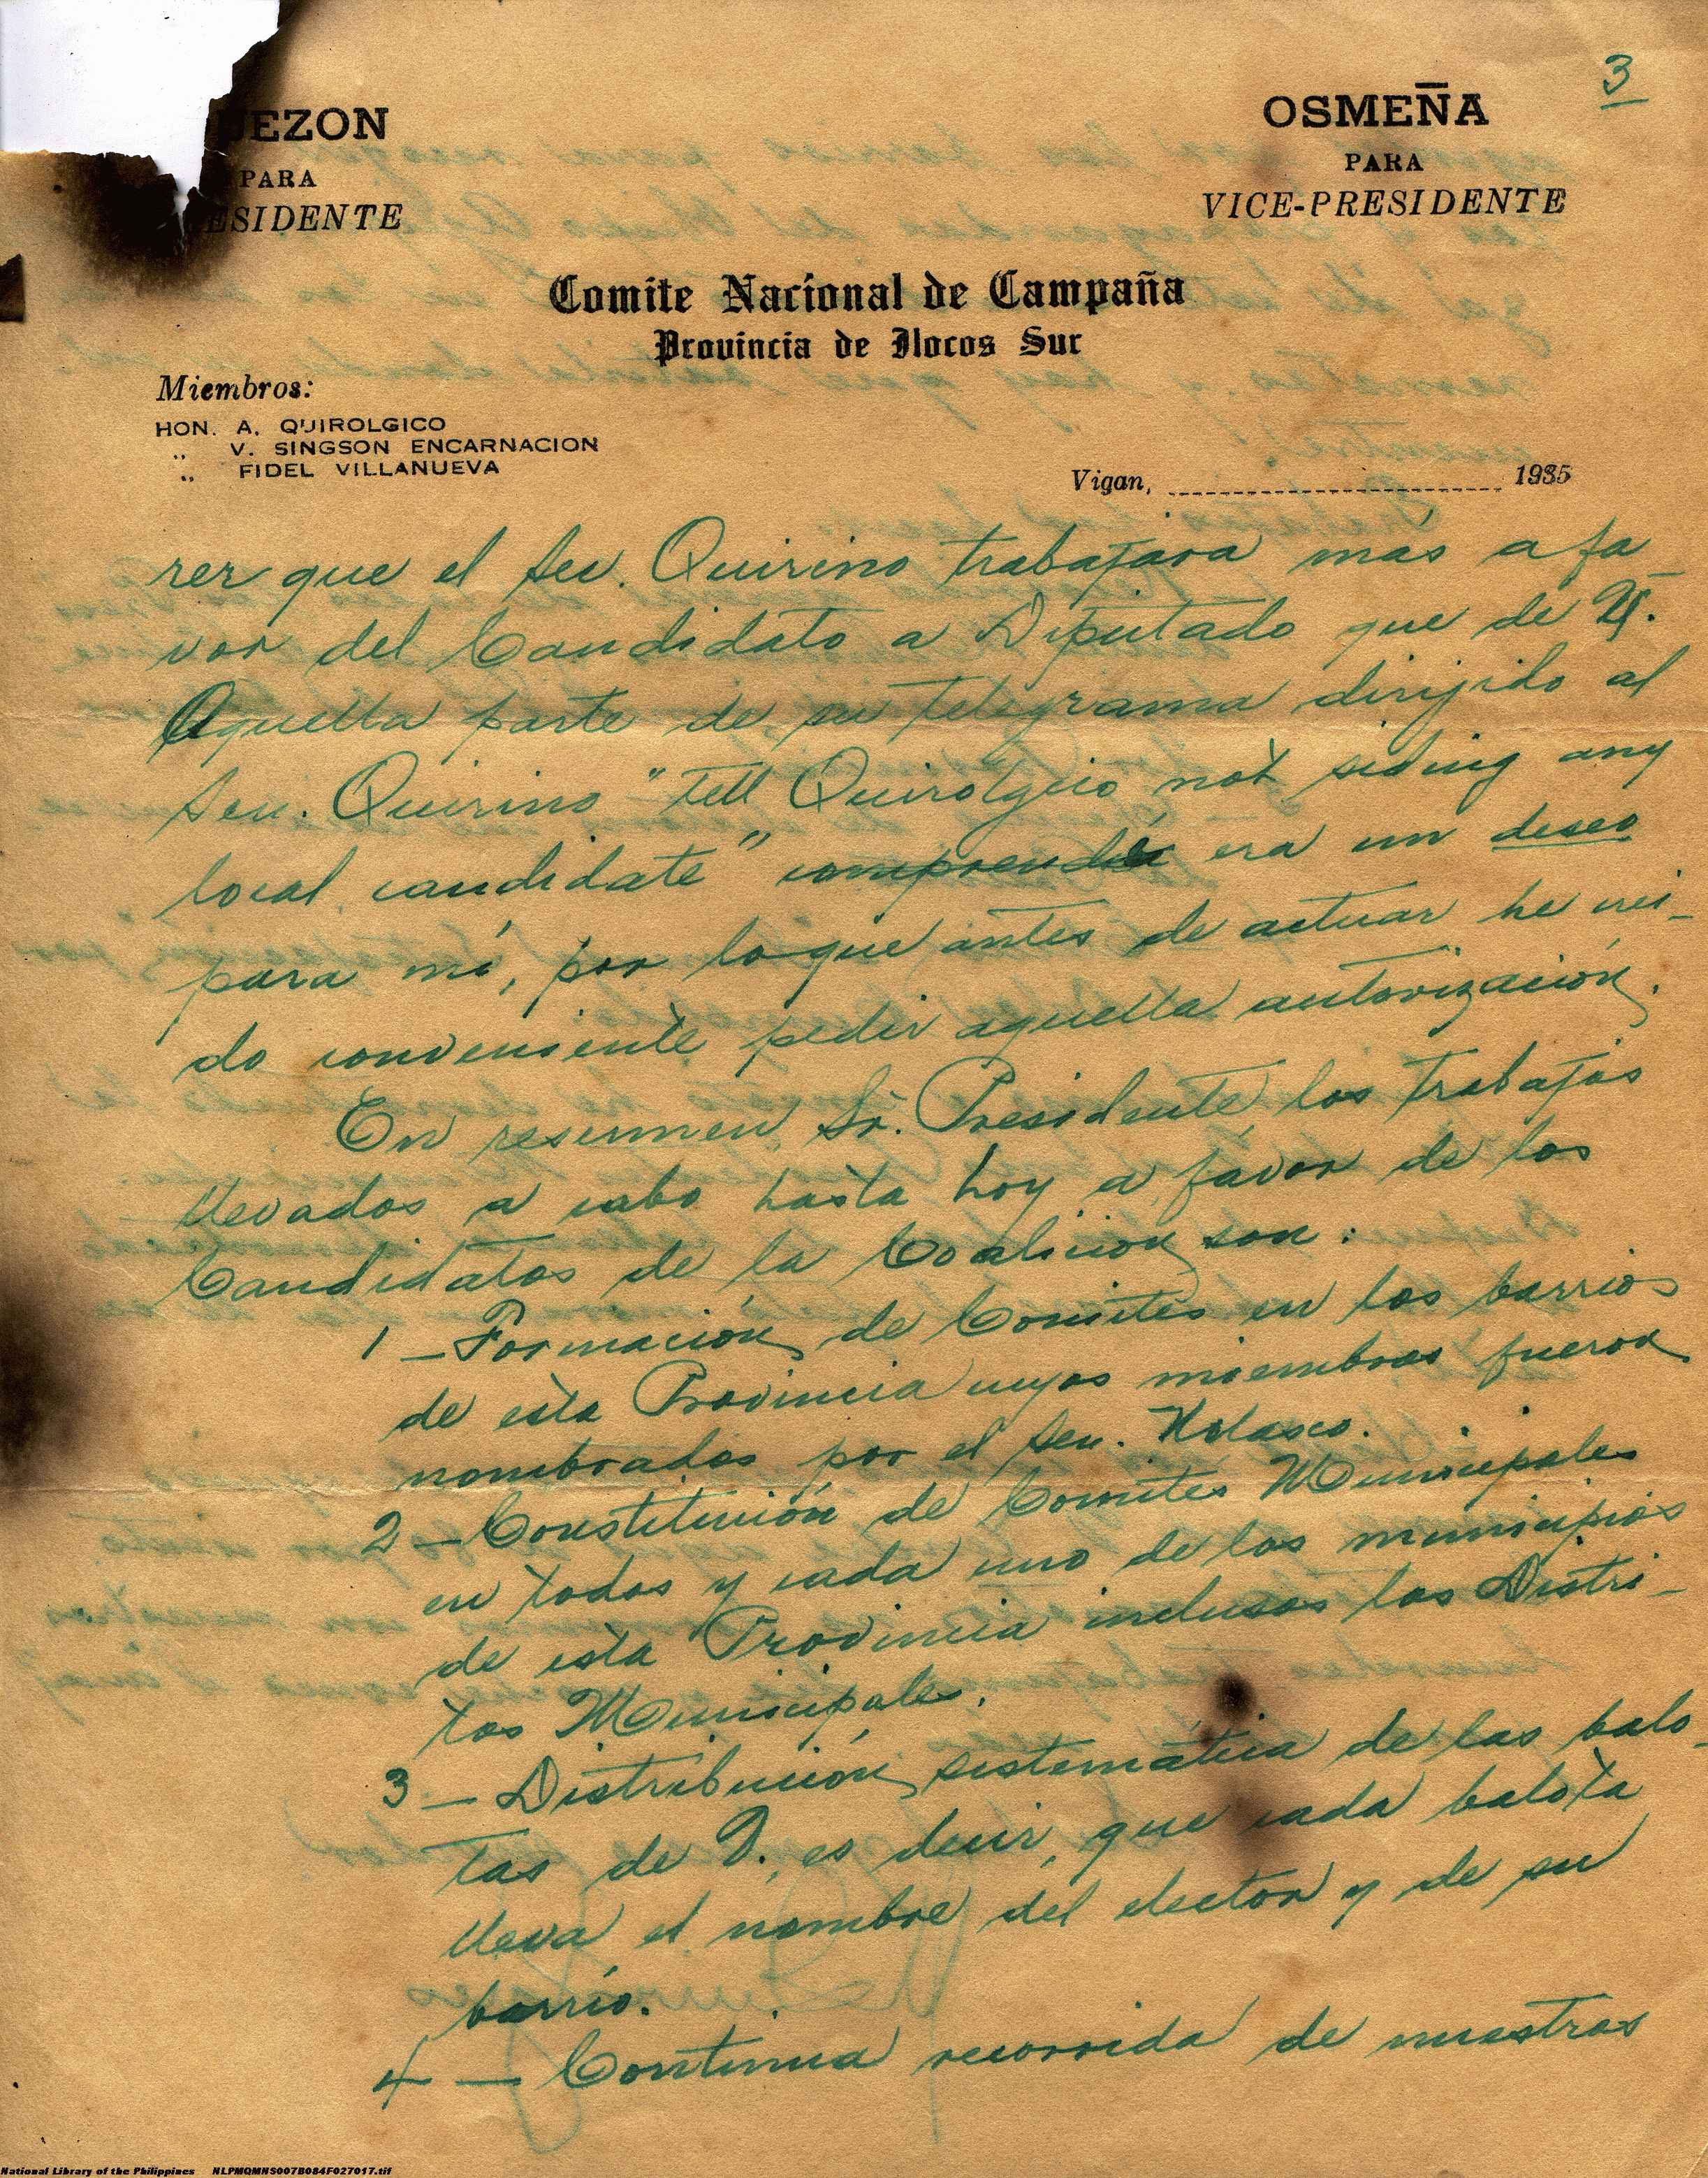 3
UEZON
PARA
ESIDENTE
OSMEÑA
PARA
VICE-PRESIDENTE
Comite Nacional de Campaña
Provincia de Ilocos Sur
Miembros:
HON. A. QUIROLGICO
„ V. SINGSON ENCARNACION
„ FIDEL VILLANUEVA
Vigan, 1935
rer que el Sen. Quirino trabajara más a fa_
vor del Candidato a Diputado que de V.
Aquella parte de su telegrama dirijido al
Sen. Quirino "tell Quirolgico not siding any
local candidate" comprendí era un deseo
para mí, por lo que antes de actuar he creí_
do conveniente pedir aquella autorización.
En resumen, Sr. Presidente, los trabajos
llevados a cabo hasta hoy a favor de los
Candidatos de la Coalicion son:
1 — Formación de Comites en los barrios
de esta Provincia cuyos miembros fueron
nombrados por el Sen. Nolasco.
2 — Constitución de Comites Municipales
en todos y cada uno de los municipios
de esta Provincia inclusos los Distri_
tos Municipales.
3 — Distribución sistemática de las balo_
tas de V., es decir, que cada balota
lleva el nombre del elector y de su
barrio.
4 — Continua recorrida de nuestros
National Library of the Philippines NLPMQMNS007B084F027017.tif